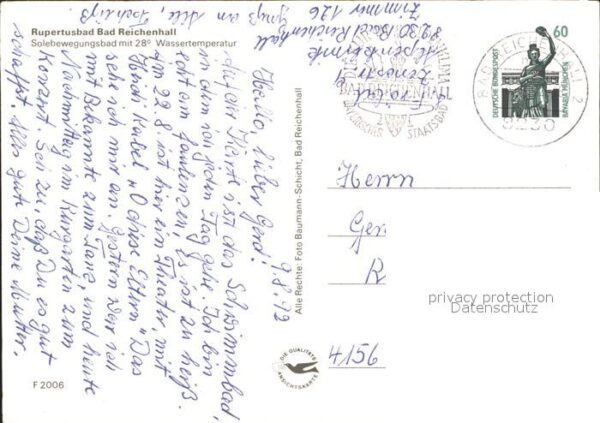 Rupertusbad Bad Reichenhall
Solebewegungsbad mit 28° Wassertemperatur
9.8.92
Hallo, lieber Gerd!
Auf der Karte ist das Schwimmbad,
in dem ich jeden Tag gehe. Ich bin
echt am faulenzen, es ist zu heiß.
Am 22.8 ist hier ein Theater mit
Heidi Kabel "O diese Eltern" Das
sehe ich mir an. Gestern war ich
mit Bekannte zum Tanz, und heute
Nachmittag im Kurgarten zum
Konzert. Sei zu, daß Du es gut
schaffst. Alles gute Deine Mutter.
Gruß an Alle,
Alpenklinik
8230 Bad Reichenhall
Zimmer 126
Alle Rechte: Foto Baumann-Schicht, Bad Reichenhall
F 2006
DIE QUALITÄTS
ANSICHTSKARTE
BAYERISCHES STAATSBAD
BAD REICHENHALL 2
8230
60
DEUTSCHE BUNDESPOST
BAVARIA MÜNCHEN
Herrn
Ger
R
4156
privacy protection
Datenschutz